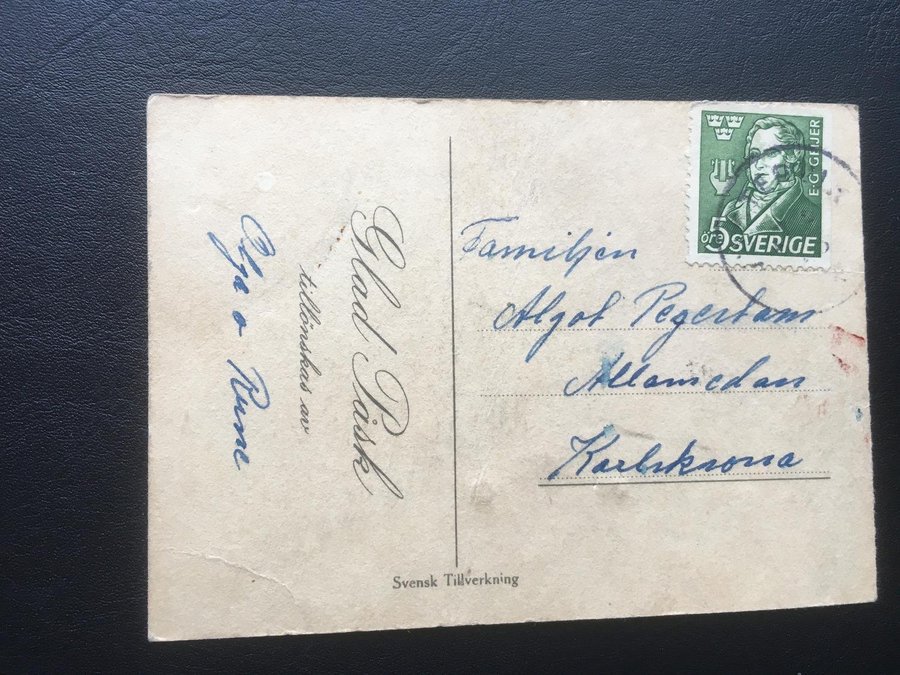 Glad Påsk
tillönskas av
Olga o Rune
E·G·GEIJER
5 öre SVERIGE
Familjen
Algot Pegerstam
Karlskrona
Svensk Tillverkning